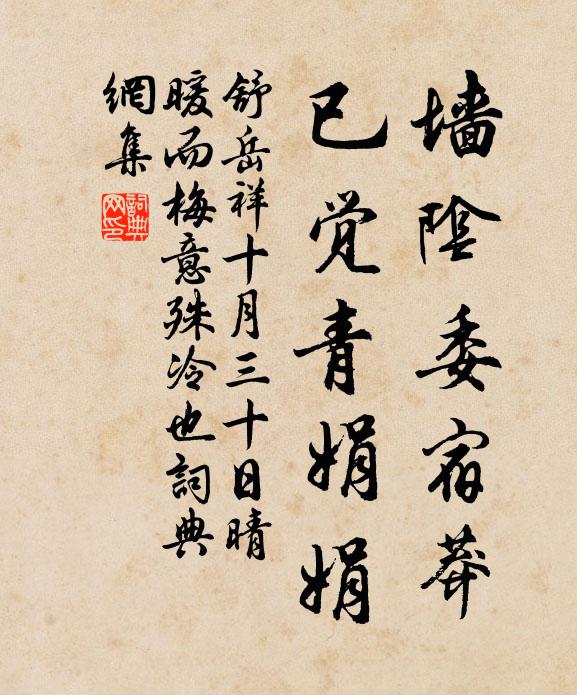 墙陰委宿莽
已觉青娟娟
舒岳祥十月三十日晴
暖而梅意殊冷也詞典
網集
詞典網印